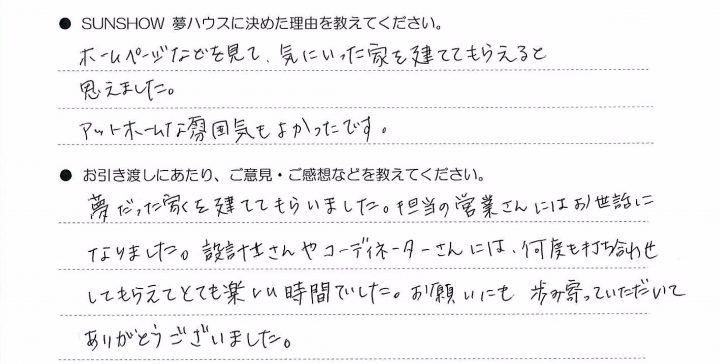 ● SUNSHOW 夢ハウスに決めた理由を教えてください。
ホームページなどを見て、気にいった家を建ててもらえると
思えました。
アットホームな雰囲気もよかったです。
● お引き渡しにあたり、ご意見・ご感想などを教えてください。
夢だった家を建ててもらいました。担当の営業さんにはお世話に
なりました。設計士さんやコーディネーターさんには、何度も打ち合わせ
してもらえてとても楽しい時間でした。お願いにも 歩み寄っていただいて
ありがとうございました。